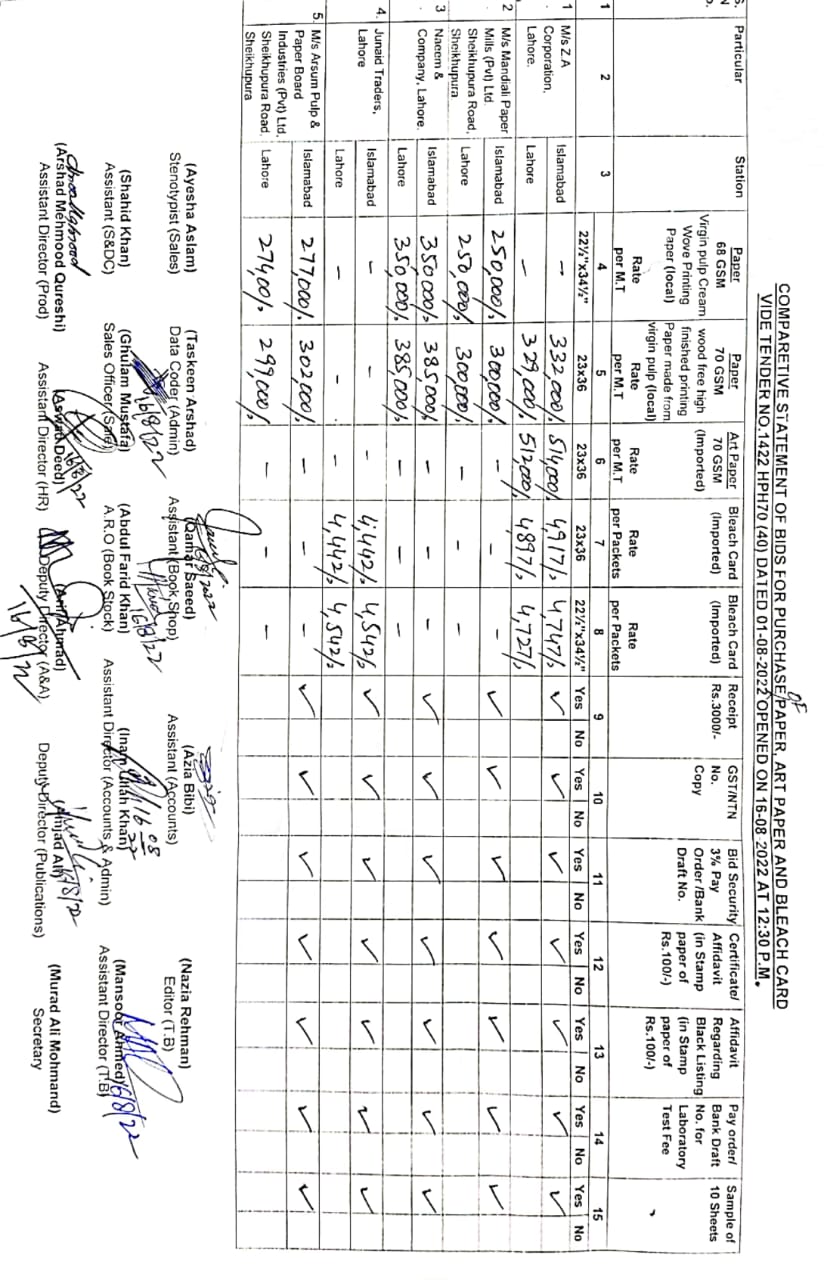 COMPARETIVE STATEMENT OF BIDS FOR PURCHASE OF PAPER, ART PAPER AND BLEACH CARD
VIDE TENDER NO.1422 HPH70 (40) DATED 01-08-2022 OPENED ON 16-08 2022 AT 12:30 P.M.
S. N o. | Particular | Station | Paper 68 GSM Virgin pulp Cream Wove Printing Paper (local) | Paper 70 GSM wood free high finished printing Paper made from virgin pulp (local) | Art Paper 70 GSM (Imported) | Bleach Card (Imported) | Bleach Card (Imported) | Receipt Rs.3000/- | GST/NTN No. Copy | Bid Security 3% Pay Order /Bank Draft No. | Certificate/ Affidavit (in Stamp paper of Rs.100/-) | Affidavit Regarding Black Listing (in Stamp paper of Rs.100/-) | Pay order/ Bank Draft No. for Laboratory Test Fee | Sample of 10 Sheets
Rate per M.T | Rate per M.T | Rate per M.T | Rate per Packets | Rate per Packets
1 | 2 | 3 | 4 | 5 | 6 | 7 | 8 | 9 | 10 | 11 | 12 | 13 | 14 | 15
22½"x34½" | 23x36 | 23x36 | 23x36 | 22½"x34½" | Yes | No | Yes | No | Yes | No | Yes | No | Yes | No | Yes | No | Yes | No
1 | M/s Z.A Corporation, Lahore. | Islamabad | – | 332,000/- | 514,000/- | 4917/- | 4,747/- | ✓ | ✓ | ✓ | ✓ | ✓ | ✓ | ✓
Lahore | – | 329,000/- | 512,000/- | 4897/- | 4,727/-
2 | M/s Mandiali Paper Mills (Pvt) Ltd. Sheikhupura Road, Sheikhupura | Islamabad | 250,000/- | 300,000/- | – | – | – | ✓ | ✓ | ✓ | ✓ | ✓ | ✓ | ✓
Lahore | 250,000/- | 300,000/- | – | – | –
3 | Naeem & Company, Lahore. | Islamabad | 350,000/- | 385,000/- | – | – | – | ✓ | ✓ | ✓ | ✓ | ✓ | ✓ | ✓
Lahore | 350,000/- | 385,000/- | – | – | –
4. | Junaid Traders, Lahore | Islamabad | – | – | – | 4,442/- | 4,542/- | ✓ | ✓ | ✓ | ✓ | ✓ | ✓ | ✓
Lahore | – | – | – | 4,442/- | 4,542/-
5. | M/s Arsum Pulp & Paper Board Industries (Pvt) Ltd. Sheikhupura Road, Sheikhupura | Islamabad | 277,000/- | 302,000/- | – | – | – | ✓ | ✓ | ✓ | ✓ | ✓ | ✓ | ✓
Lahore | 274,00/- | 299,000/- | – | – | –
(Ayesha Aslam) (Taskeen Arshad) (Qamar Saeed) (Azia Bibi) (Nazia Rehman)
Stenotypist (Sales) Data Coder (Admin) Assistant (Book Shop) Assistant (Accounts) Editor (T.B)
(Shahid Khan) (Ghulam Mustafa) (Abdul Farid Khan) (Inam Ullah Khan) (Mansoor Ahmed)
Assistant (S&DC) Sales Officer (Sale) A.R.O (Book Stock) Assistant Director (Accounts & Admin) Assistant Director (T.B)
(Arshad Mehmood Qureshi) (Aswad Deed) (Arif Ahmad) (Amjad Ali) (Murad Ali Mohmand)
Assistant Director (Prod) Assistant Director (HR) Deputy Director (A&A) Deputy Director (Publications) Secretary